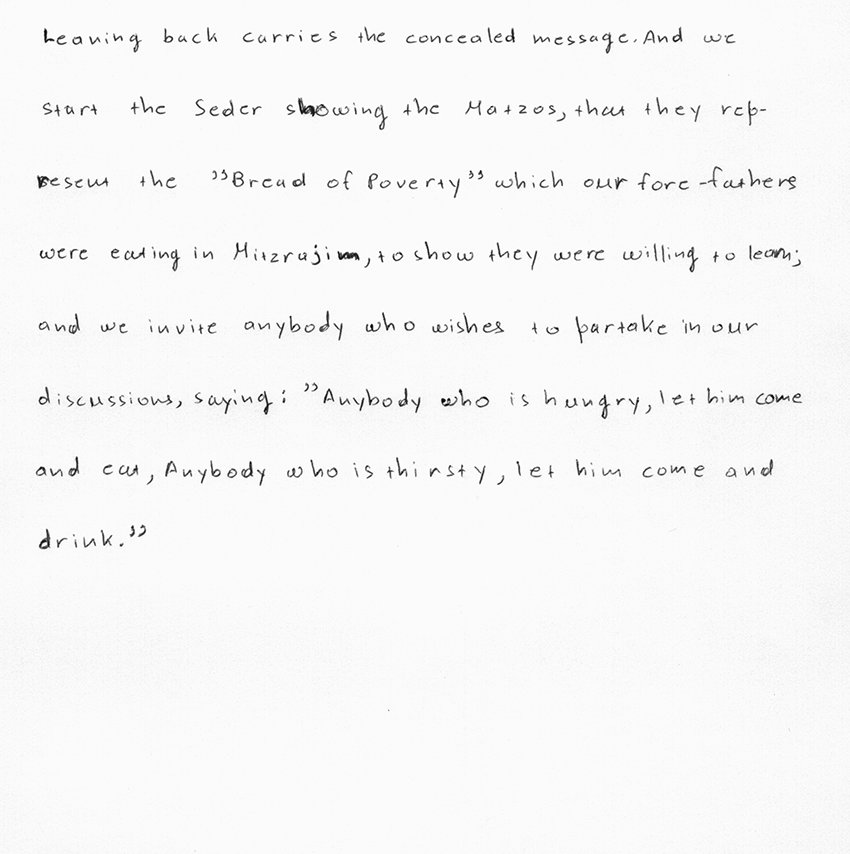 Leaning back carries the concealed message. And we
start the Seder showing the Matzos, that they rep-
resent the "Bread of Poverty" which our fore-fathers
were eating in Mitzrajim, to show they were willing to learn;
and we invite anybody who wishes to partake in our
discussions, saying: "Anybody who is hungry, let him come
and eat, Anybody who is thirsty, let him come and
drink."